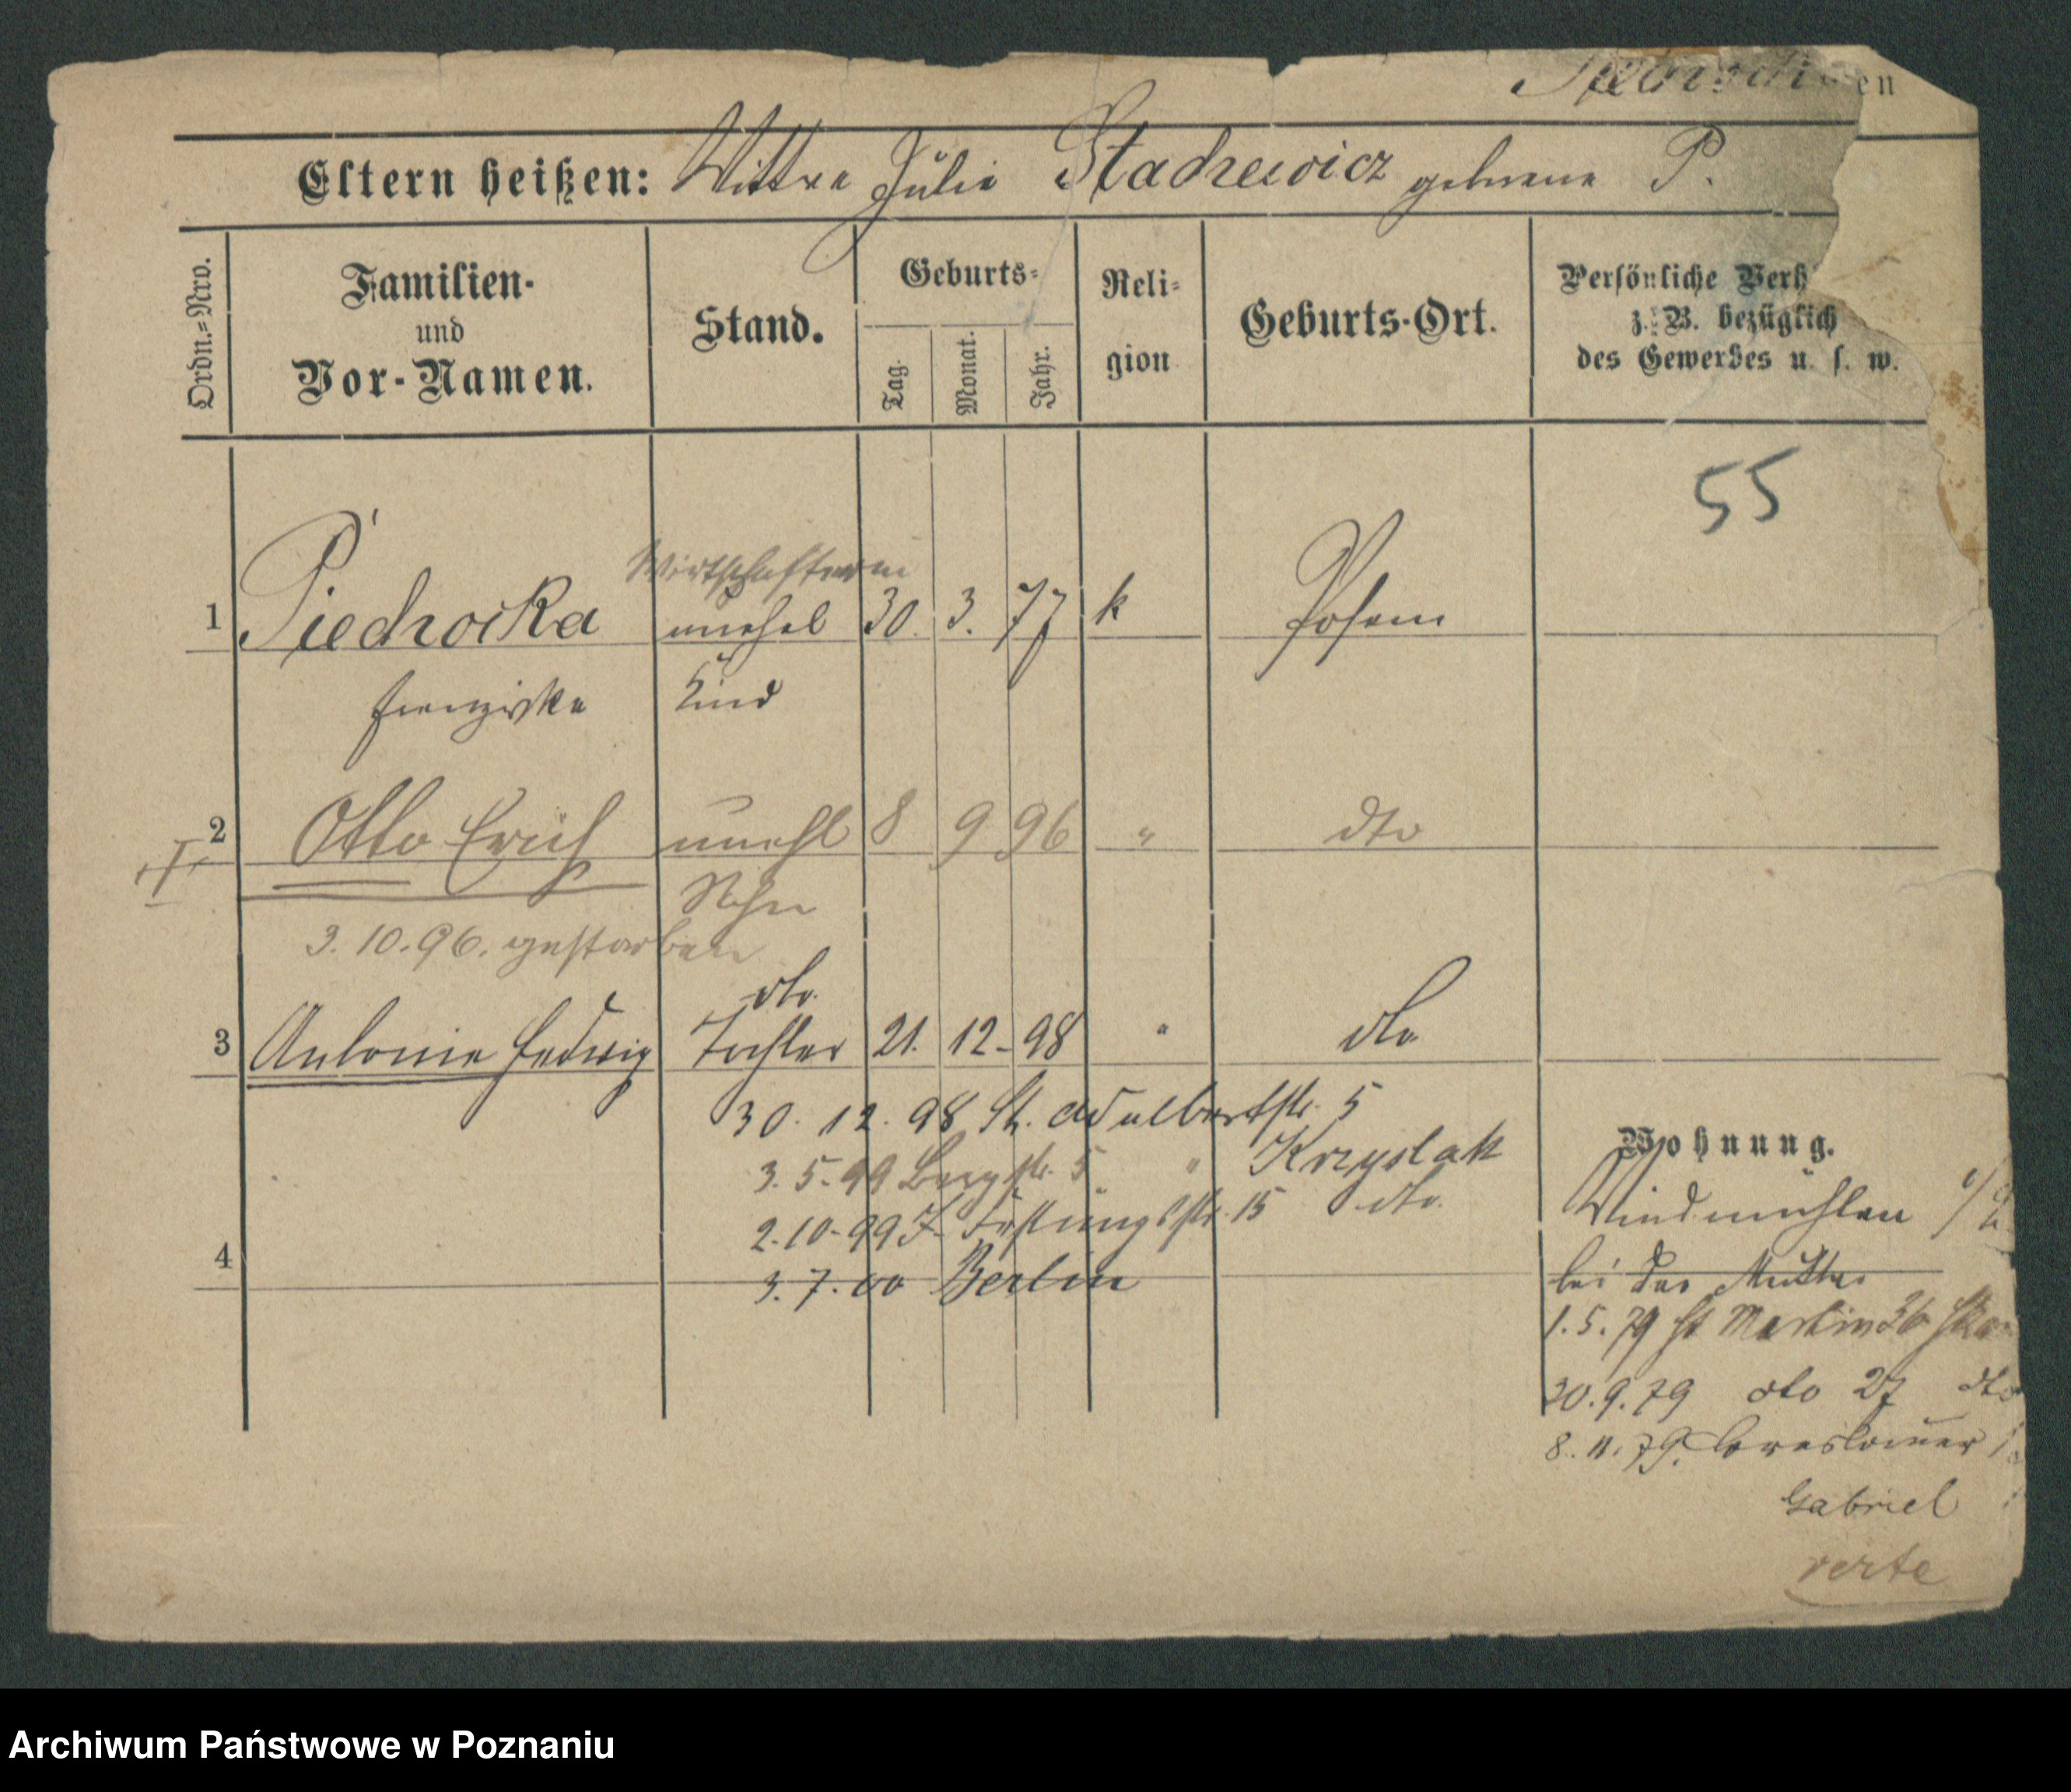 en
Eltern heißen: Wittwe Julie Stachewicz geborene P.
Ordn.=Nro.
Familien-
und
Vor-Namen.
Stand.
Geburts=
Tag.
Monat.
Jahr.
Reli=
gion
Geburts-Ort.
Persönliche Verh
z. B. bezüglich
des Gewerbes u. s. w.
55
Wirthschafterin
1 Piechocka unehel 30. 3. 77 k Posen
Franziska Kind
2 Otto Erich unehl 8 9 96 " dto
Sohn
3. 10. 96. gestorben
dto.
3 Antonie Hedwig Tochter 21. 12. 98 " dto
30. 12. 98 St. Adalbertstr. 5
3. 5. 99 Bergstr. 5 " Krzyslak
2. 10. 99 Festungsstr. 15 dto.
4
3. 7. 00 Berlin
Wohnung.
Windmühlen
bei der Mutter
1. 5. 79 St Martin 36
20. 9. 79 dto 27 dto
8. 11. 79. Breslauer
Gabriel
verte
Archiwum Państwowe w Poznaniu